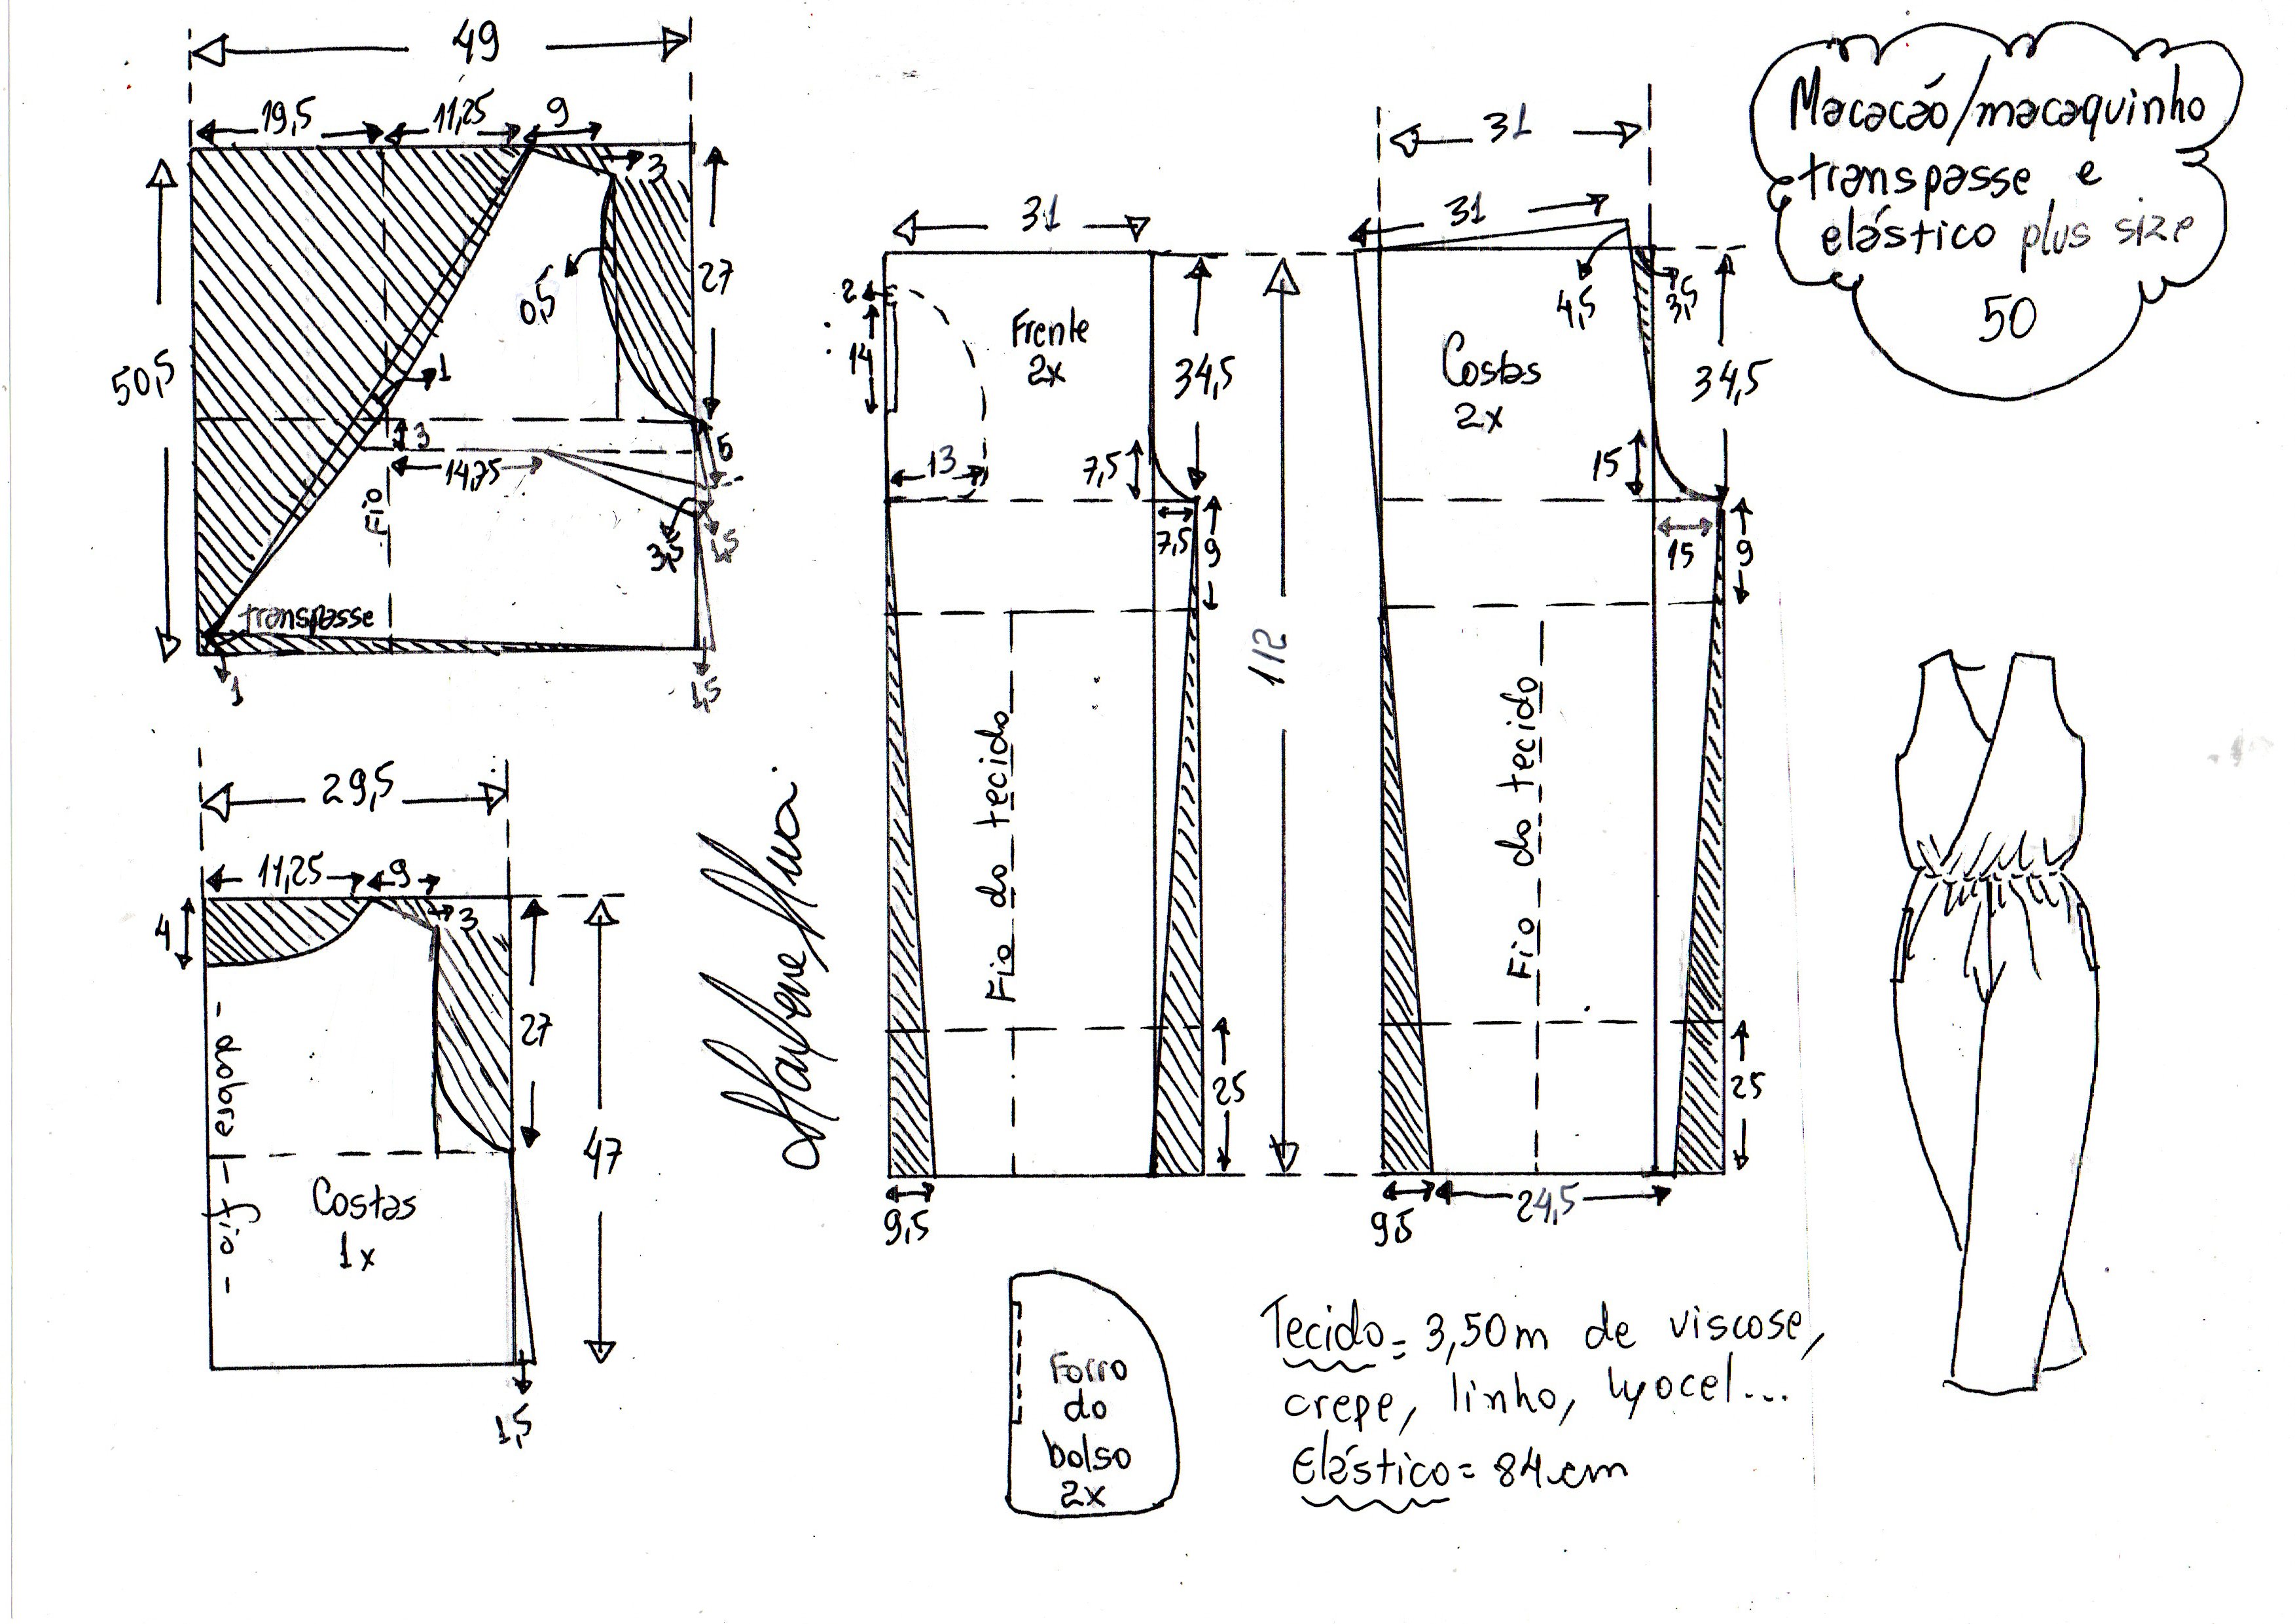 49
19,5
11,25
9
3
27
50,5
0,5
1
3
14,75
Fio
3,5
1,5
transpasse
1
1,5
31
2
14
Frente
2x
34,5
13
7,5
7,5
9
112
Fio do tecido
25
9,5
31
31
4,5
3,5
34,5
Costas
2x
15
15
9
Fio do tecido
25
9,5
24,5
Macacão/macaquinho
transpasse e
elástico plus size
50
29,5
11,25
9
3
4
27
47
- fio - dobra -
Costas
1x
1,5
Marlene Mukai
Forro
do
bolso
2x
Tecido = 3,50m de viscose,
crepe, linho, lyocel...
Elástico = 84cm